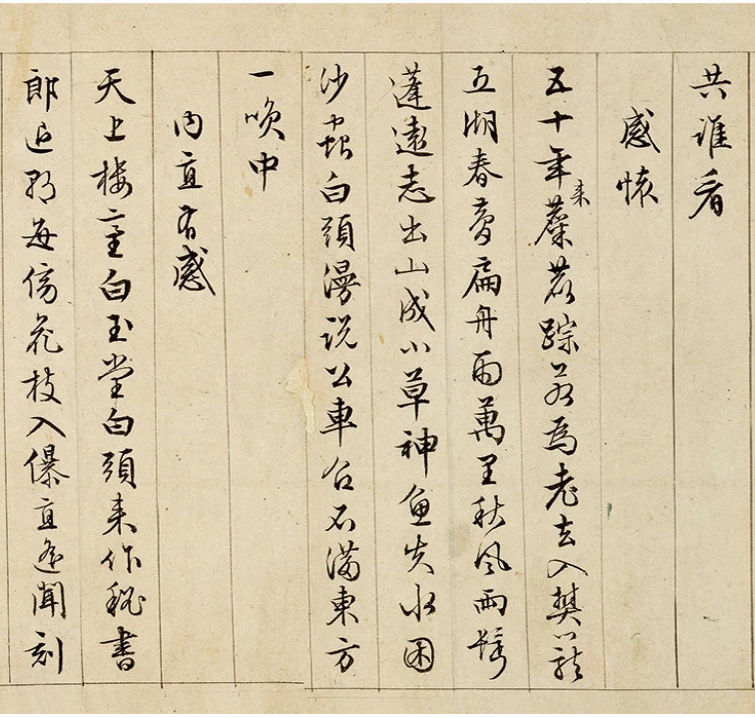 共誰看
感懷
五十年來麋鹿踪若為老去入樊籠
五湖春夢扁舟雨萬里秋風兩鬢
蓬遠志出山成小草神魚失水困
沙蟲白頭漫說公車召不滿東方
一咲中
內直有感
天上樓臺白玉堂白頭來作秘書
郎退朝每傍花枝入儤直遙聞刻